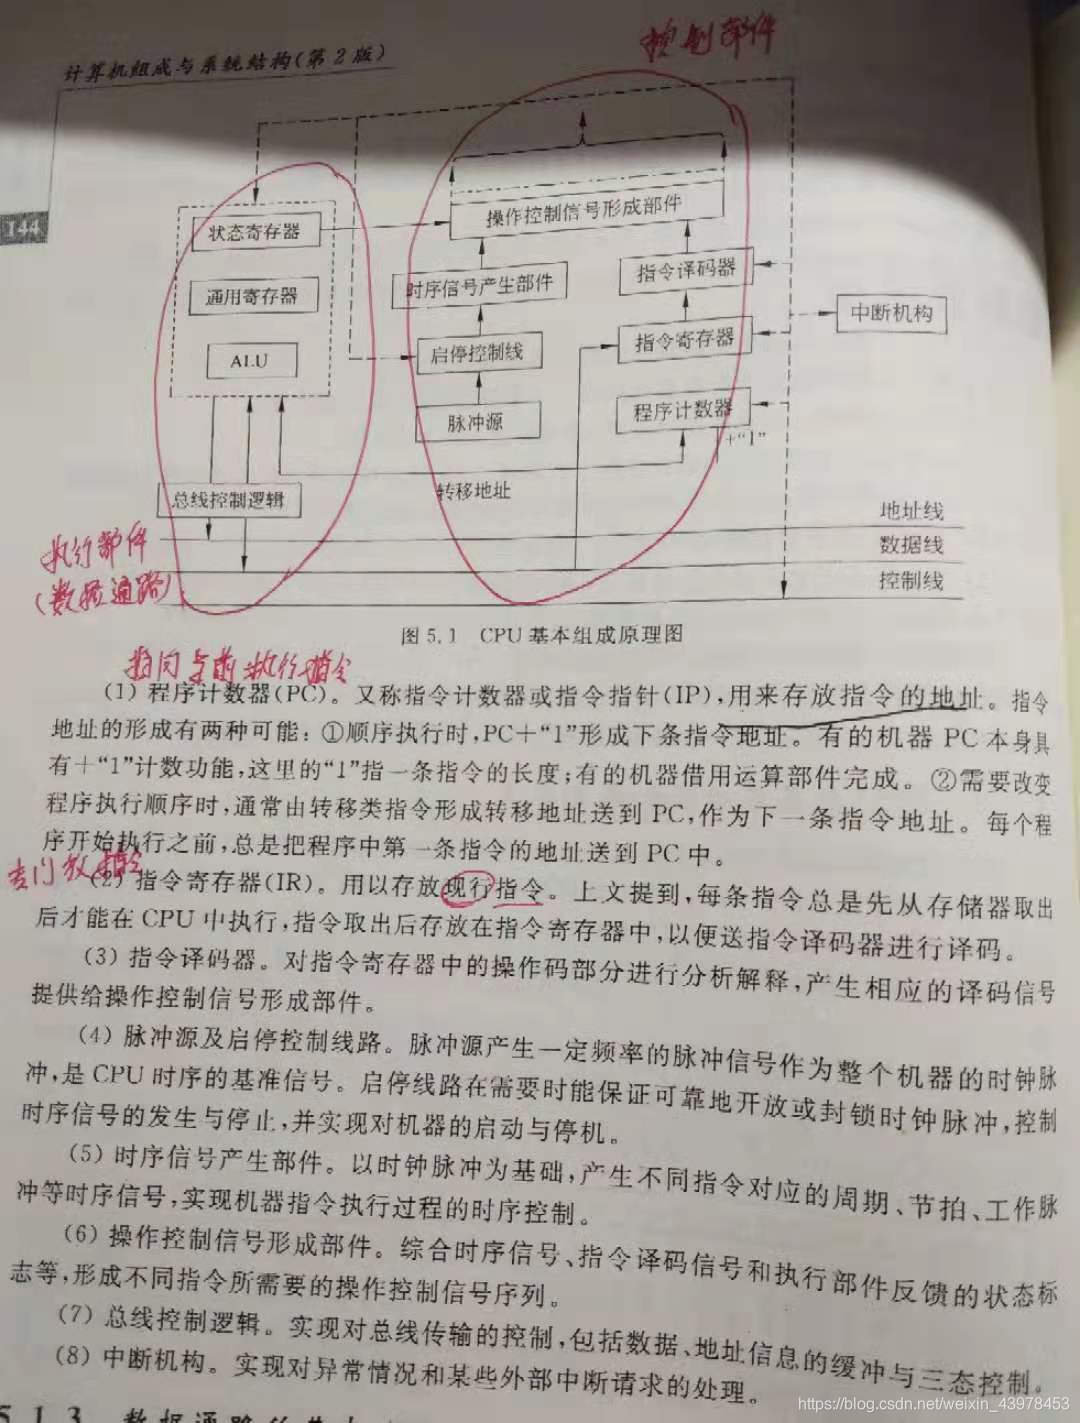 控制部件
计算机组成与系统结构(第2版)
144
操作控制信号形成部件
状态寄存器
指令译码器
时序信号产生部件
通用寄存器
中断机构
指令寄存器
启停控制线
ALU
程序计数器
脉冲源
+“1”
转移地址
总线控制逻辑
地址线
执行部件
数据线
(数据通路)
控制线
图5.1 CPU基本组成原理图
指向当前执行指令
(1) 程序计数器(PC)。又称指令计数器或指令指针(IP),用来存放指令的地址。指令
地址的形成有两种可能:①顺序执行时,PC+“1”形成下条指令地址。有的机器PC本身具
有+“1”计数功能,这里的“1”指一条指令的长度;有的机器借用运算部件完成。②需要改变
程序执行顺序时,通常由转移类指令形成转移地址送到PC,作为下一条指令地址。每个程
序开始执行之前,总是把程序中第一条指令的地址送到PC中。
专门放指令
(2) 指令寄存器(IR)。用以存放现行指令。上文提到,每条指令总是先从存储器取出
后才能在CPU中执行,指令取出后存放在指令寄存器中,以便送指令译码器进行译码。
(3) 指令译码器。对指令寄存器中的操作码部分进行分析解释,产生相应的译码信号
提供给操作控制信号形成部件。
(4) 脉冲源及启停控制线路。脉冲源产生一定频率的脉冲信号作为整个机器的时钟脉
冲,是CPU时序的基准信号。启停线路在需要时能保证可靠地开放或封锁时钟脉冲,控制
时序信号的发生与停止,并实现对机器的启动与停机。
(5) 时序信号产生部件。以时钟脉冲为基础,产生不同指令对应的周期、节拍、工作脉
冲等时序信号,实现机器指令执行过程的时序控制。
(6) 操作控制信号形成部件。综合时序信号、指令译码信号和执行部件反馈的状态标
志等,形成不同指令所需要的操作控制信号序列。
(7) 总线控制逻辑。实现对总线传输的控制,包括数据、地址信息的缓冲与三态控制。
(8) 中断机构。实现对异常情况和某些外部中断请求的处理。
5.1.3 数据通路
https://blog.csdn.net/weixin_43978453